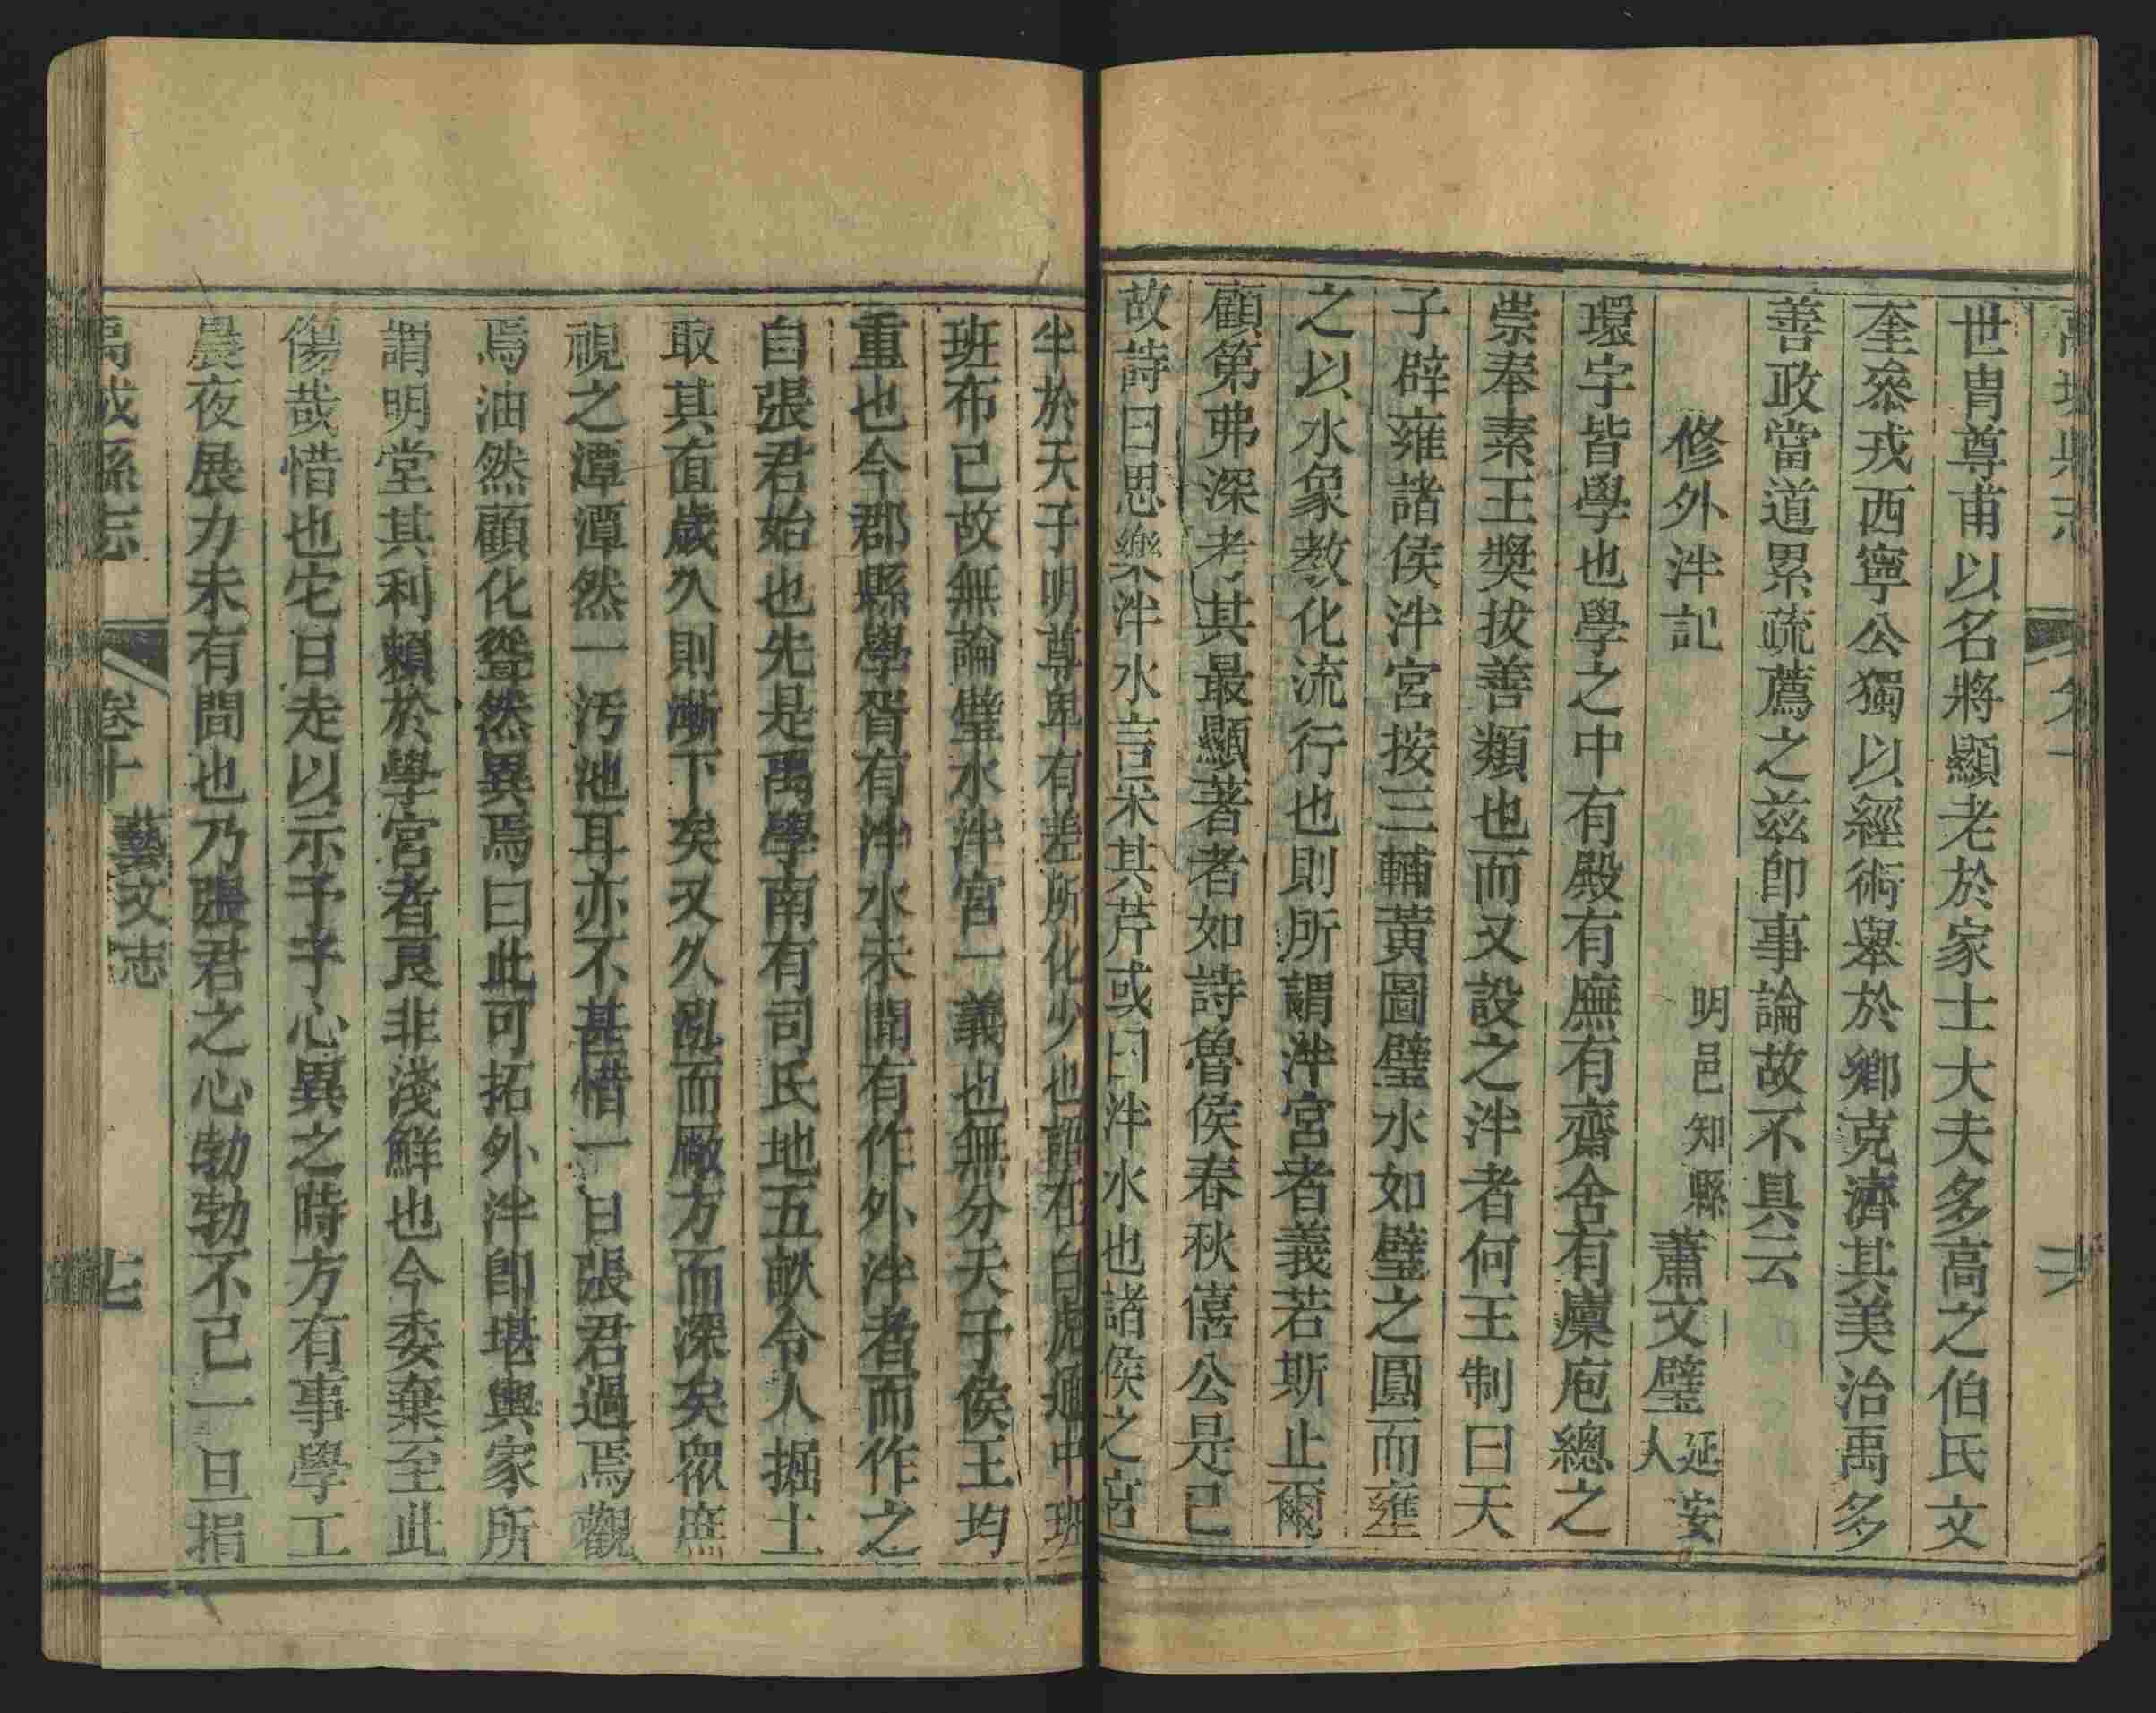 世胄尊甫以名將顯老於家士大夫多高之伯氏文
奎叅戎西寧公獨以經術舉於鄉克濟其美治禹多
善政當道累疏薦之茲卽事論故不具云
修外泮記
明邑知縣蕭文璧延安人
環宇皆學也學之中有殿有廡有齋舍有廩庖總之
崇奉素王奬拔善類也而又設之泮者何王制曰天
子辟雍諸侯泮宮按三輔黃圖璧水如璧之圓而壅
之以水象教化流行也則所謂泮宮者義若斯止爾
顧第弗深考其最顯著者如詩魯侯春秋僖公是已
故詩曰思樂泮水言采其芹或曰泮水也諸侯之宮
半於天子明尊卑有差所化少也說在白虎通中班
班布已故無論璧水泮宮一義也無分天子侯王均
重也今郡縣學胥有泮水未聞有作外泮者而作之
自張君始也先是禹學南有司氏地五畝令人掘土
取其直歲久則漸下矣又久泓而廠方而深矣眾庶
視之潭潭然一汚池耳亦不甚惜一日張君過焉觀
焉油然顧化瑩然異焉曰此可拓外泮卽堪輿家所
謂明堂其利賴於學宮者良非淺鮮也今委棄至此
傷哉惜也它日走以示予予心異之時方有事學工
晨夜展力未有間也乃張君之心勃勃不已一旦捐
禹城縣志
卷十
藝文志
七